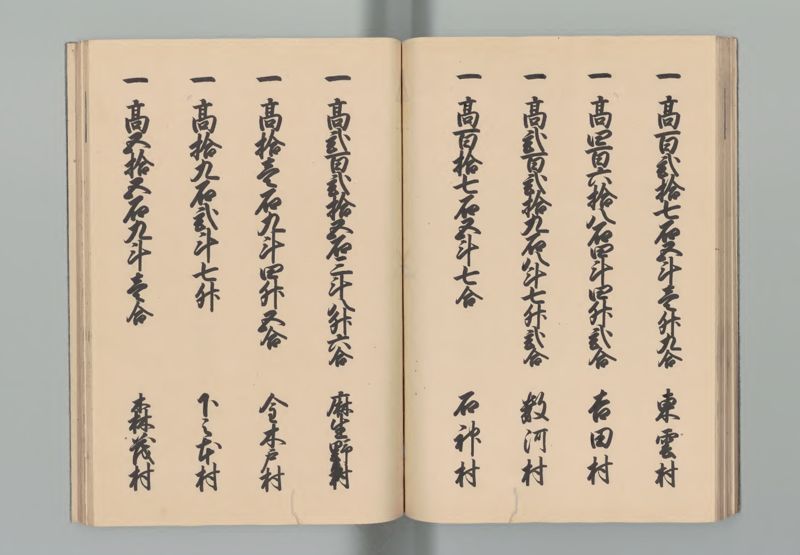 一 高百弐拾七石五斗壱升九合 東雲村
一 高四百六拾八石四斗四升弐合 吉田村
一 高弐百弐拾九石八斗七升弐合 数河村
一 高百拾七石五斗七合 石神村
一 高弐百弐拾五石三斗八升六合 麻生野村
一 高拾壱石九斗四升五合 今木戸村
一 高拾九石弐斗七升 下之本村
一 高五拾五石九斗壱合 森茂村